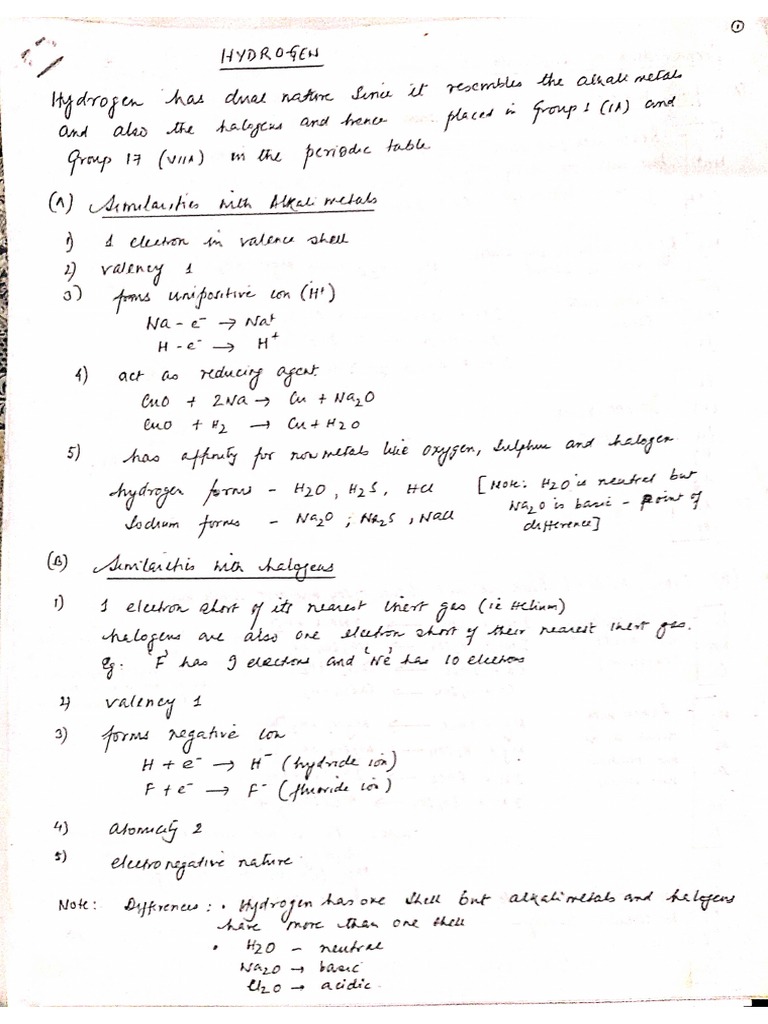 1
HYDROGEN
Hydrogen has dual nature since it resembles the alkali metals
and also the halogens and hence placed in Group 1 (IA) and
Group 17 (VIIA) in the periodic table
(A) Similarities with Alkali metals
1) 1 electron in valence shell
2) valency 1
3) forms unipositive ion (H⁺)
Na - e⁻ → Na⁺
H - e⁻ → H⁺
4) act as reducing agent.
CuO + 2Na → Cu + Na₂O
CuO + H₂ → Cu + H₂O
5) has affinity for nonmetals like oxygen, sulphur and halogen
hydrogen forms - H₂O, H₂S, HCl [Note: H₂O is neutral but
Sodium forms - Na₂O ; Na₂S, NaCl Na₂O is basic - point of
difference]
(B) Similarities with halogens
1) 1 electron short of its nearest inert gas (ie Helium)
halogens are also one electron short of their nearest inert gas.
Eg. 'F' has 9 electrons and 'Ne' has 10 electrons
2) valency 1
3) forms negative ion
H + e⁻ → H⁻ (hydride ion)
F + e⁻ → F⁻ (fluoride ion)
4) atomicity 2
5) electronegative nature
Note: Differences : • Hydrogen has one shell but alkali metals and halogens
have more than one shell
• H₂O - neutral
Na₂O → basic
Cl₂O → acidic.